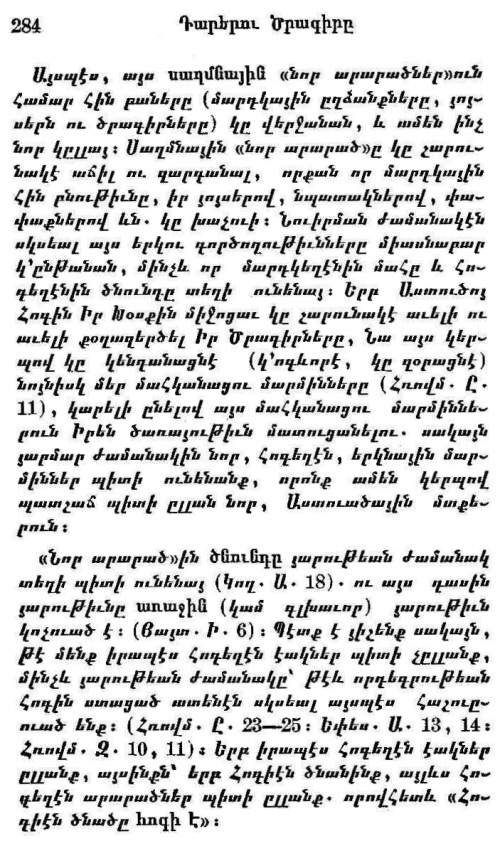 284 Դարերու Ծրագիրը
Այսպէս, այս սաղմնային «նոր արարածներ»ուն
համար հին բաները (մարդկային ըղձանքները, յոյ-
սերն ու ծրագիրները) կը վերջանան, և ամեն ինչ
նոր կըլլայ։ Սաղմնային «նոր արարած»ը կը շարու-
նակէ աճիլ ու զարդանալ, որքան որ մարդկային
հին բնութիւնը, իր յոյսերով, նպատակներով, փա-
փաքներով ևն. կը խաչուի։ Նուիրման ժամանակէն
սկսեալ այս երկու գործողութիւնները միասնաբար
կ'ընթանան, մինչև որ մարդկեղէնին մահը և հո-
գեղէնին ծնունդը տեղի ունենայ։ Երբ Աստուծոյ
Հոգին Իր Խօսքին միջոցաւ կը շարունակէ աւելի ու
աւելի քօղազերծել Իր Ծրագիրները, Նա այս կեր-
պով կը կենդանացնէ (կ'ոգևորէ, կը զօրացնէ)
նոյնիսկ մեր մահկանացու մարմինները (Հռովմ. Ը.
11), կարելի ընելով այս մահկանացու մարմիննե-
րուն Իրեն ծառայութիւն մատուցանելու. սակայն
յարմար ժամանակին նոր, հոգեղէն, երկնային մար-
միններ պիտի ունենանք, որոնք ամեն կերպով
պատշաճ պիտի ըլլան նոր, Աստուածային մտքե-
րուն։
«Նոր արարած»ին ծնունդը յարութեան ժամանակ
տեղի պիտի ունենայ (Կող. Ա. 18). ու այս դասին
յարութիւնը առաջին (կամ գլխաւոր) յարութիւն
կոչուած է։ (Յայտ. Ի. 6)։ Պէտք է յիշենք սակայն,
թէ մենք իրապէս հոգեղէն էակներ պիտի չըլլանք,
մինչև յարութեան ժամանակը՝ թէև որդեգրութեան
հոգին ստացած ատենէն սկսեալ այսպէս հաշուը-
ուած ենք։ (Հռովմ. Ը. 23—25։ Եփես. Ա. 13, 14։
Հռովմ. Զ. 10, 11)։ Երբ իրապէս հոգեղէն էակներ
ըլլանք, այսինքն՝ երբ հոգիէն ծնանինք, այլևս հո-
գեղէն արարածներ պիտի ըլլանք. որովհետև «Հո-
գիէն ծնածը հոգի է»։